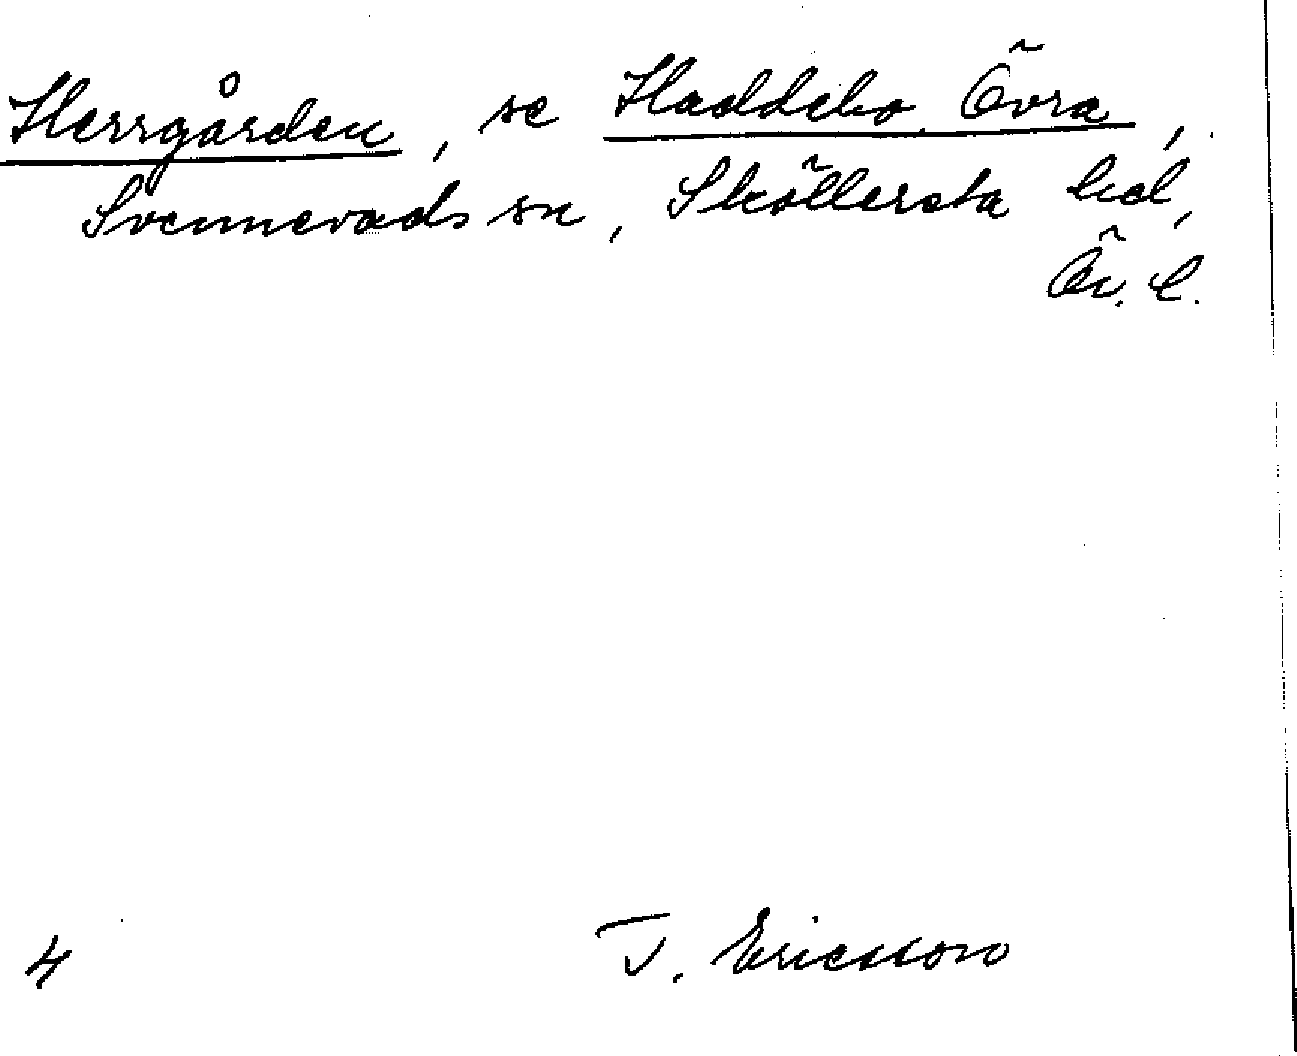 Herrgården, se Haddebo, Övra,
Svennevads sn, Sköllersta hd,
Ör. l.
4 T. Ericsson